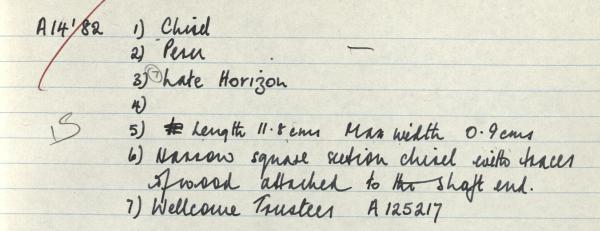 A14'82 1) Chisel
2) Peru —
3) (?) Late Horizon
4)
5) Length 11.8 cms Max width 0.9 cms
6) Narrow square section chisel with traces
of wood attached to the shaft end.
7) Wellcome Trustees A125217